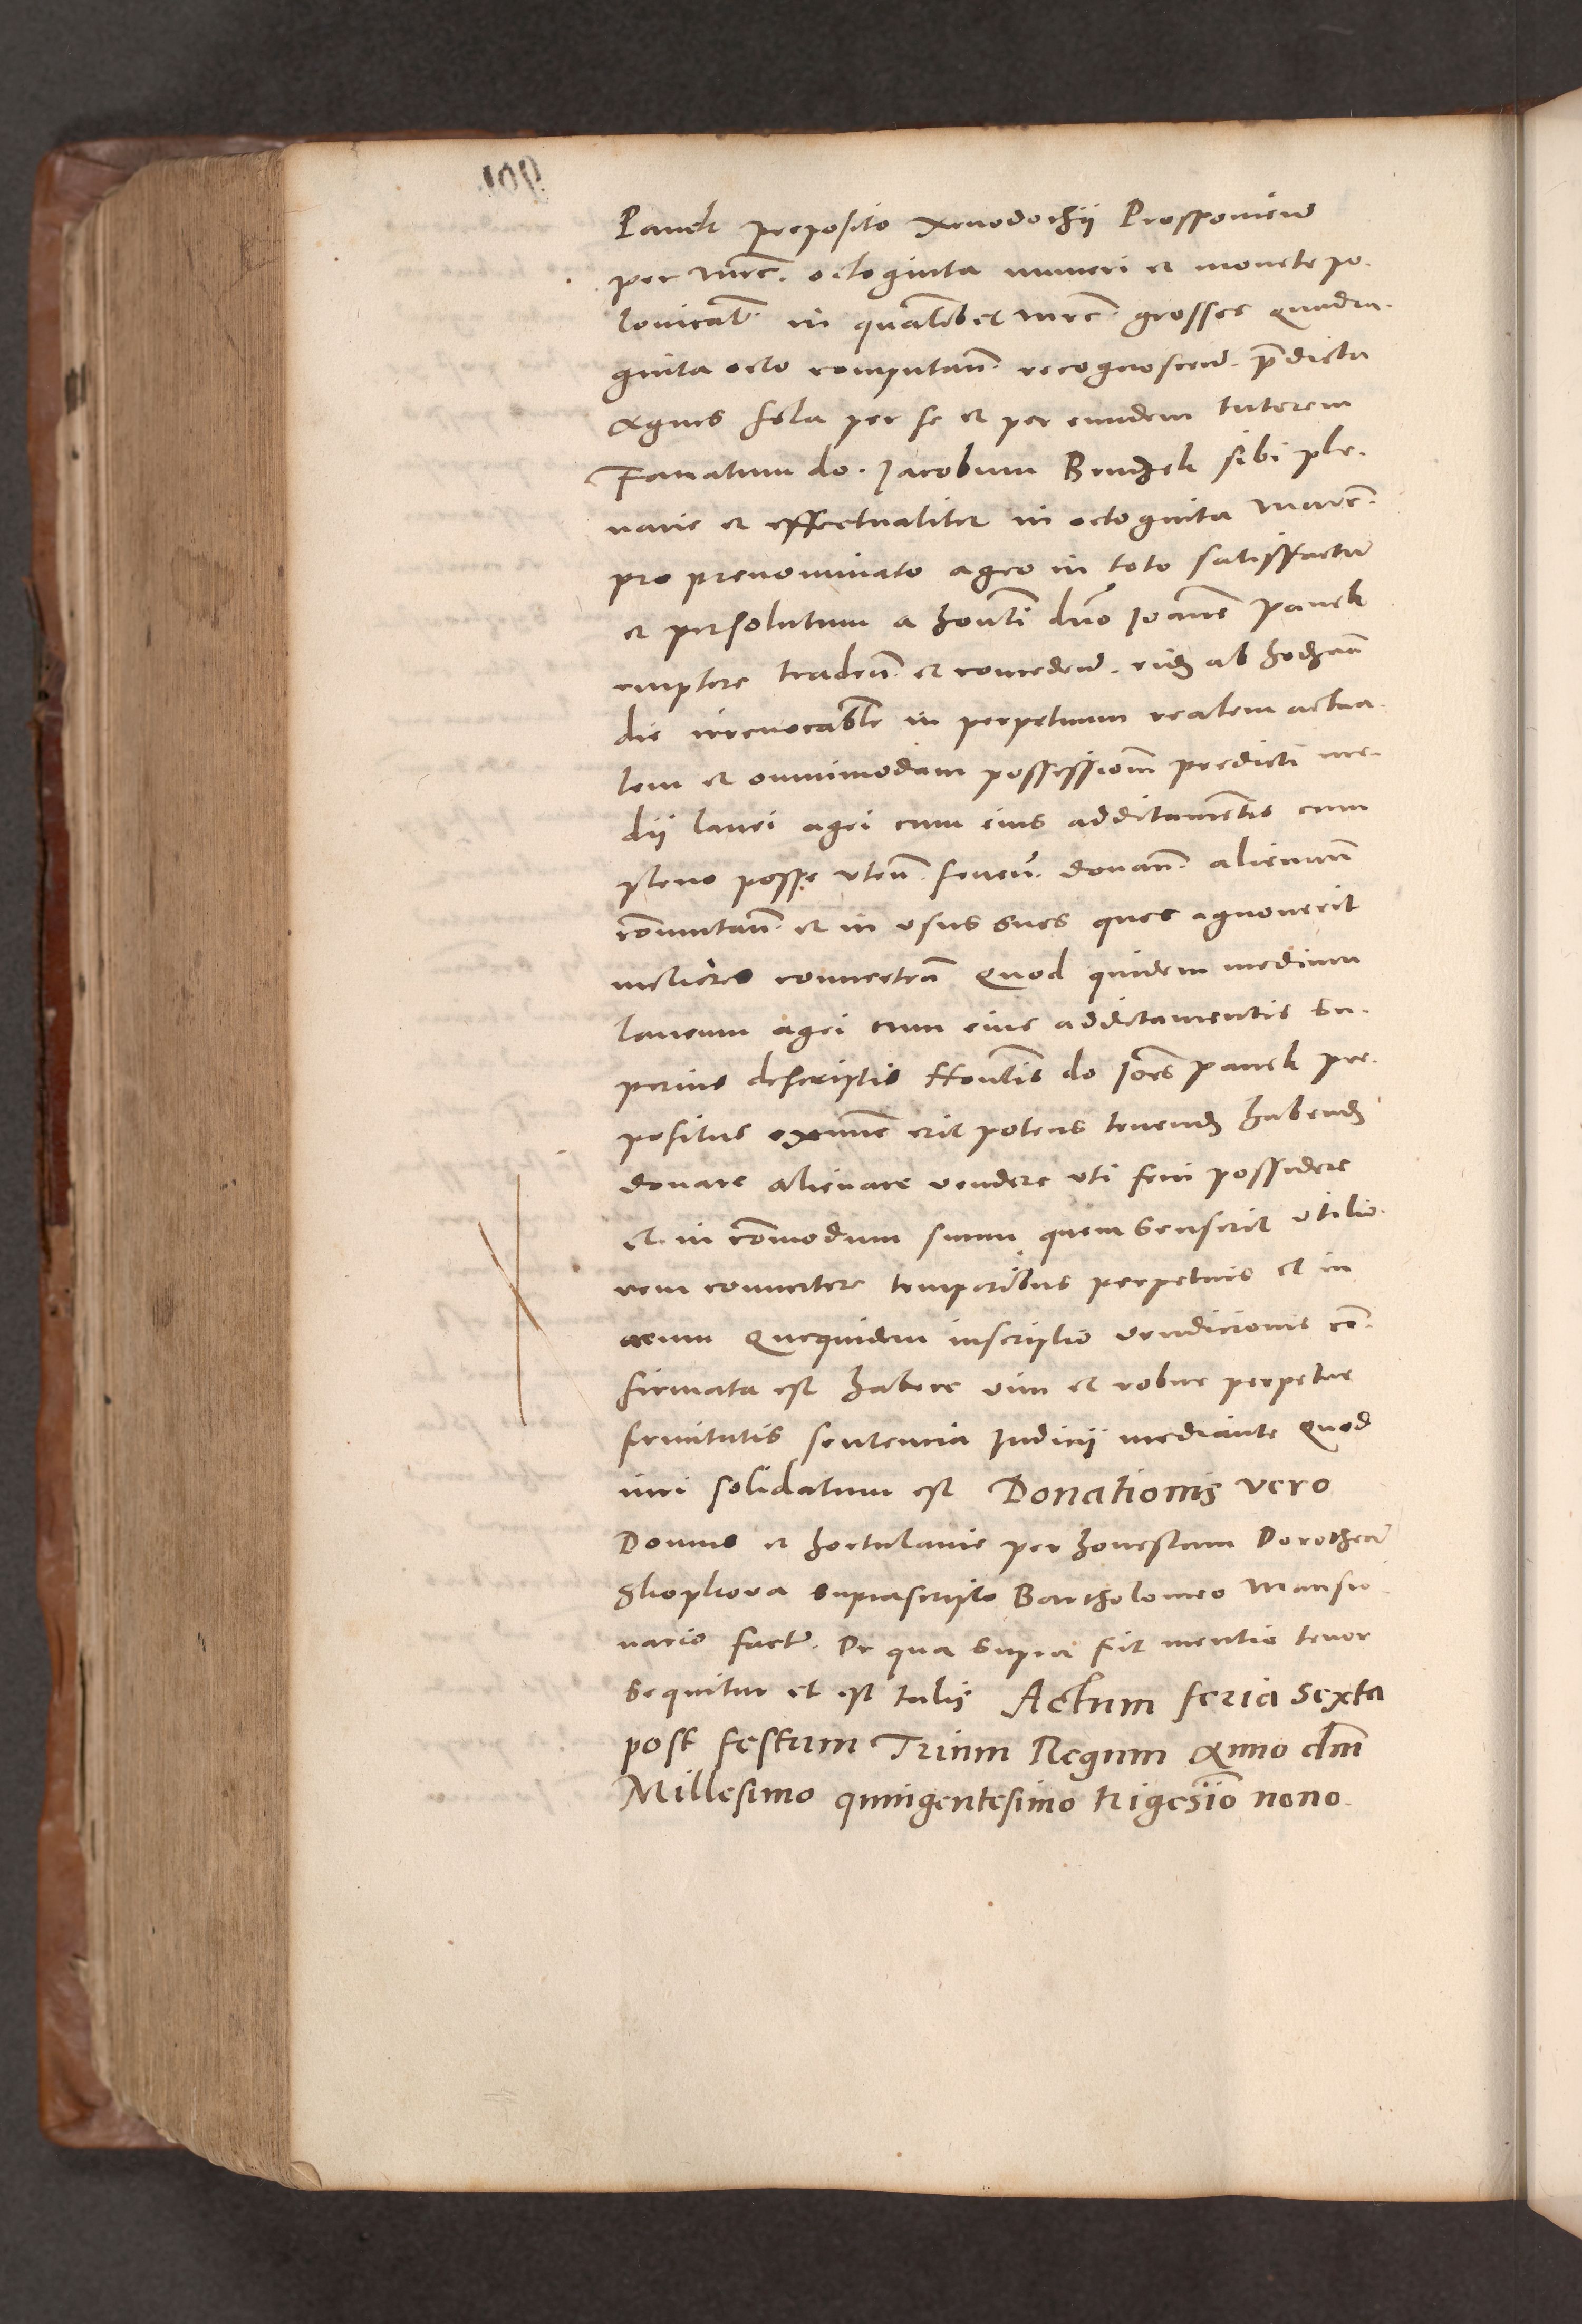 Paweł preposito Xenodochii Prossoviens
per mrc. octoginta numeri et monete po-
lonicał. in qualibet mrc. grossos quadra-
ginta octo computan̄. recognoscen̄. p̄dicta
Agnes per se et per eundem tutorem
do. Iacobum sibi ple-
narie et effectualiter in octoginta marc̄.
pro prenominato agro in toto satisfactū
et persolutum a honl̄i dn̄o Joan̄e Paweł
emptore traden̄. et conceden̄. eidē ab hodiern̄
die irrevocabl̄r in perpetuum realem actua-
lem et omnimodam possessionē predicti me-
dii lanei agri cum eius additamentis cum
pleno posse uten̄. fruen̄. donan̄. alienan̄
cōmutan̄. et in usus suos quos agnoverit
meliores converten̄ Quod quidem medium
laneum agri cum eius additamentis su-
perius descriptis Honl̄is do Joēs Paweł pre-
positus exnunc erit potens tenend habend
donare alienare vendere uti frui possidere
et in cōmodum suum quem senserit utilio-
rem convertere temporibus perpetuis et in
aevum Quequidem inscriptio vendicionis cō-
firmata est habere vim et robur perpetue
firmitatis sentencia Iudicii mediante Quod
iuri solidatum est Donationis vero
Domus et hortulanie per honestam Dorotheā
suprascripto Bartholomeo Mansio-
nario factē. De qua supra fit mentio tenor
sequitur et est talis Actum feria sexta
post festum Trium Regum Anno dm̄
Millesimo quingentesimo trigesīo nono.
901